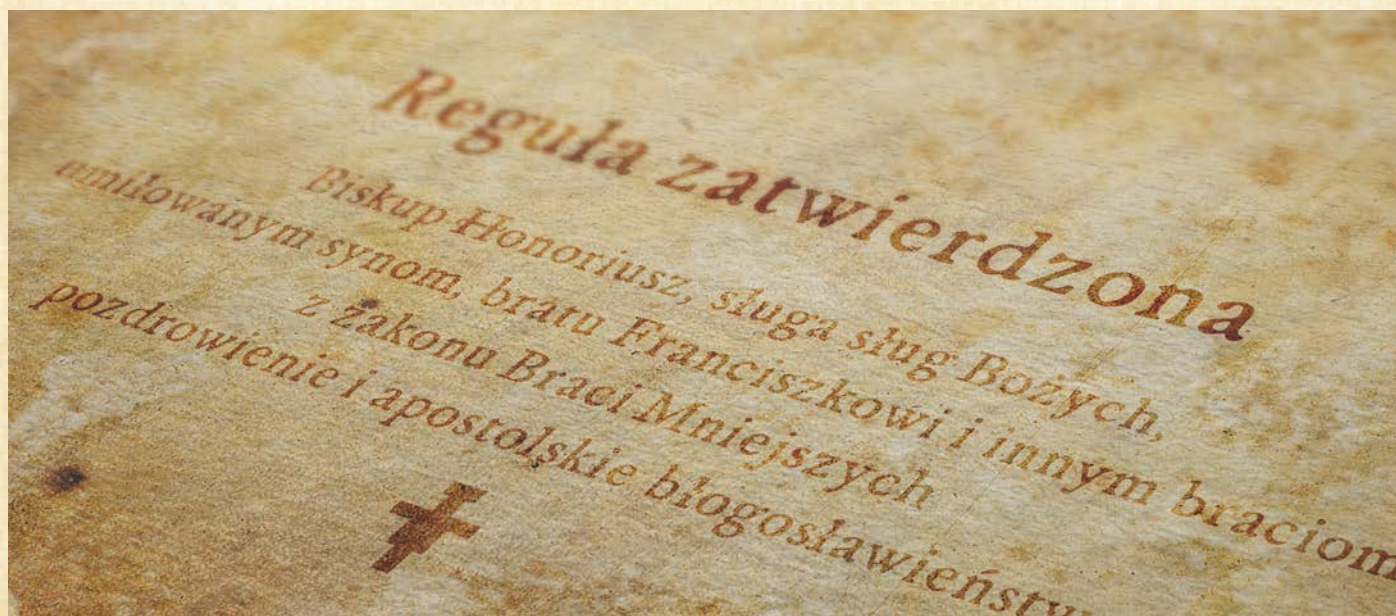 Reguła zatwierdzona
Biskup Honoriusz, sługa sług Bożych,
umiłowanym synom, bratu Franciszkowi i innym braciom
z Zakonu Braci Mniejszych
pozdrowienie i apostolskie